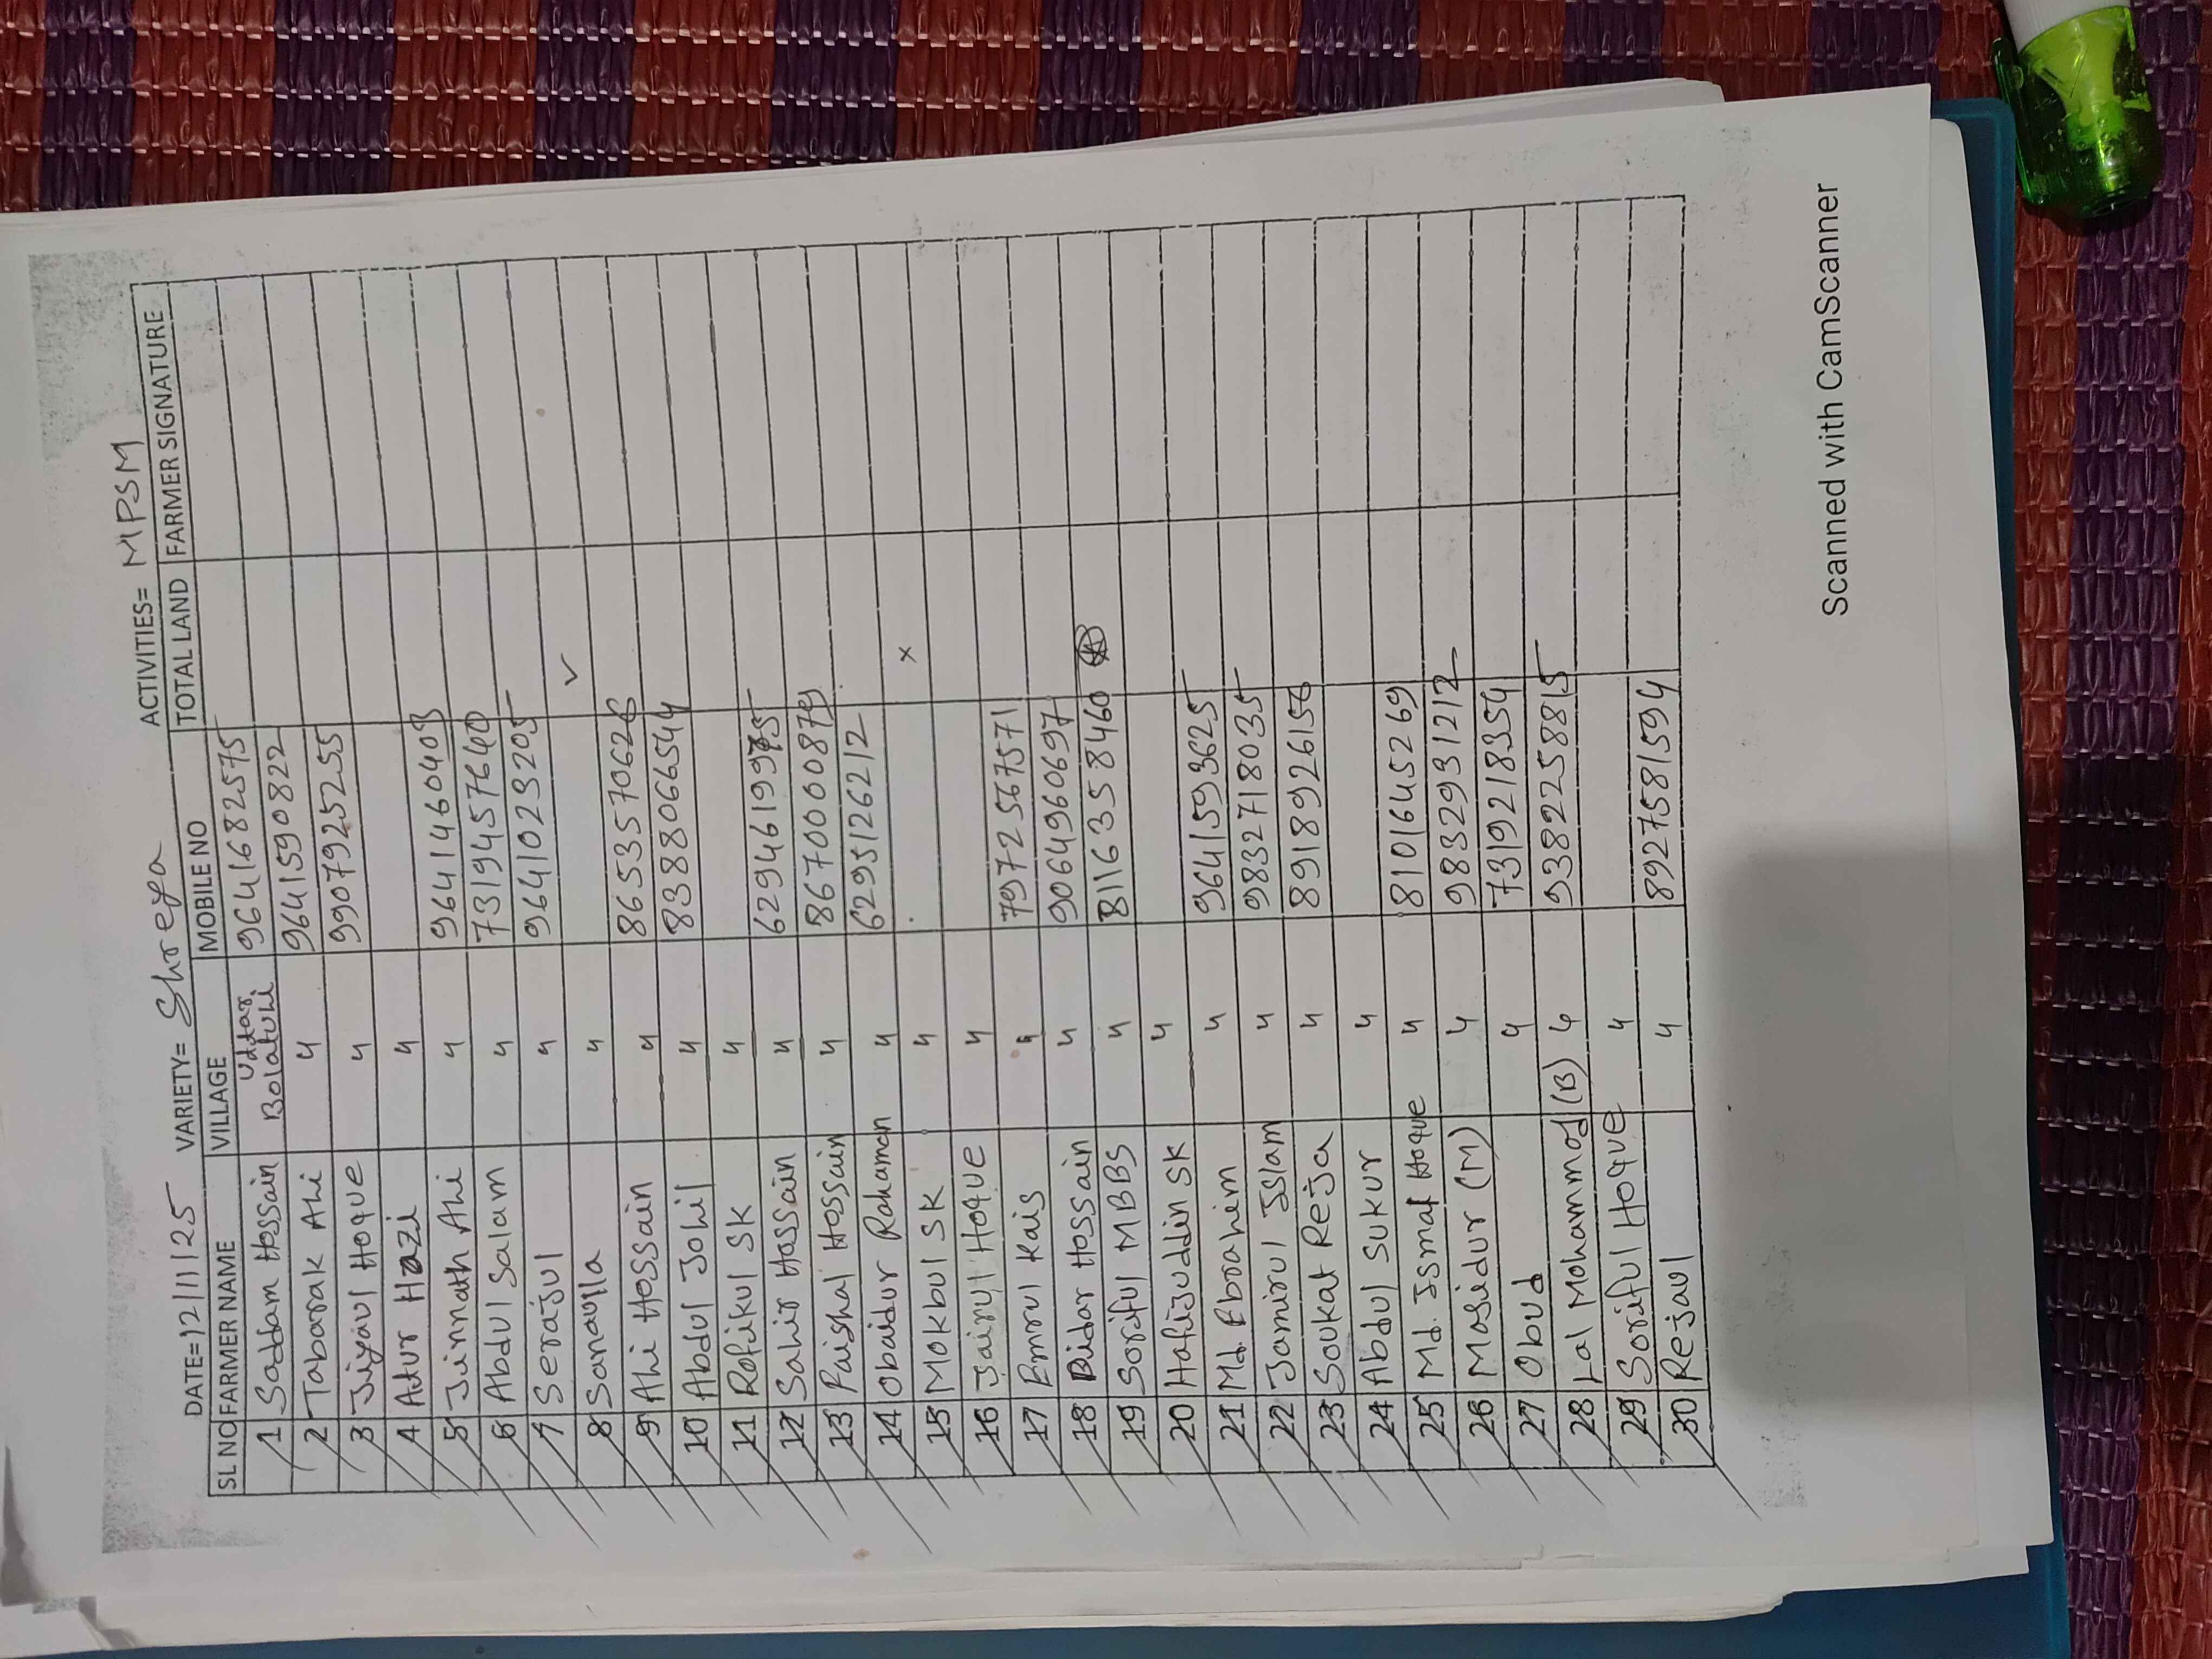 DATE=12/11/25 VARIETY= Shreya ACTIVITIES= MPSM
SL NO FARMER NAME VILLAGE MOBILE NO TOTAL LAND FARMER SIGNATURE
1 Saddam Hossain Uddar Bolatuli 9641682575
2 Tabarak Ali 4 9641590822
3 Jiyaul Hoque 4 9907925255
4 Atur Hazi 4
5 Jinnath Ali 4 9641460403
6 Abdul Salam 4 7319457640
7 Serajul 4 9641023205
8 Sanaulla 4 ✓
9 Ali Hossain 4 8653570626
10 Abdul Johil 4 8388066544
11 Rofikul SK 4
12 Sahir Hossain 4 6294619975
13 Faishal Hossain 4 8670000879
14 Obaidur Rahaman 4 6295126212
15 Mokbul SK 4 ×
16 Jairul Hoque 4
17 Emrul Kais 4 7972567571
18 Didar Hossain 4 9064960697
19 Soriful MBBS 4 8116358460
20 Hafijuddin SK 4
21 Md. Ebrahim 4 9641593625
22 Jamirul Islam 4 9832718035
23 Soukat Reja 4 8918926156
24 Abdul Sukur 4
25 Md. Ismail Hoque 4 8101645269
26 Mosidur (M) 4 9832931212
27 Obud 4 7319218354
28 Lal Mohammod (B) 4 9382258815
29 Soriful Hoque 4
30 Rejaul 4 8927581594
Scanned with CamScanner